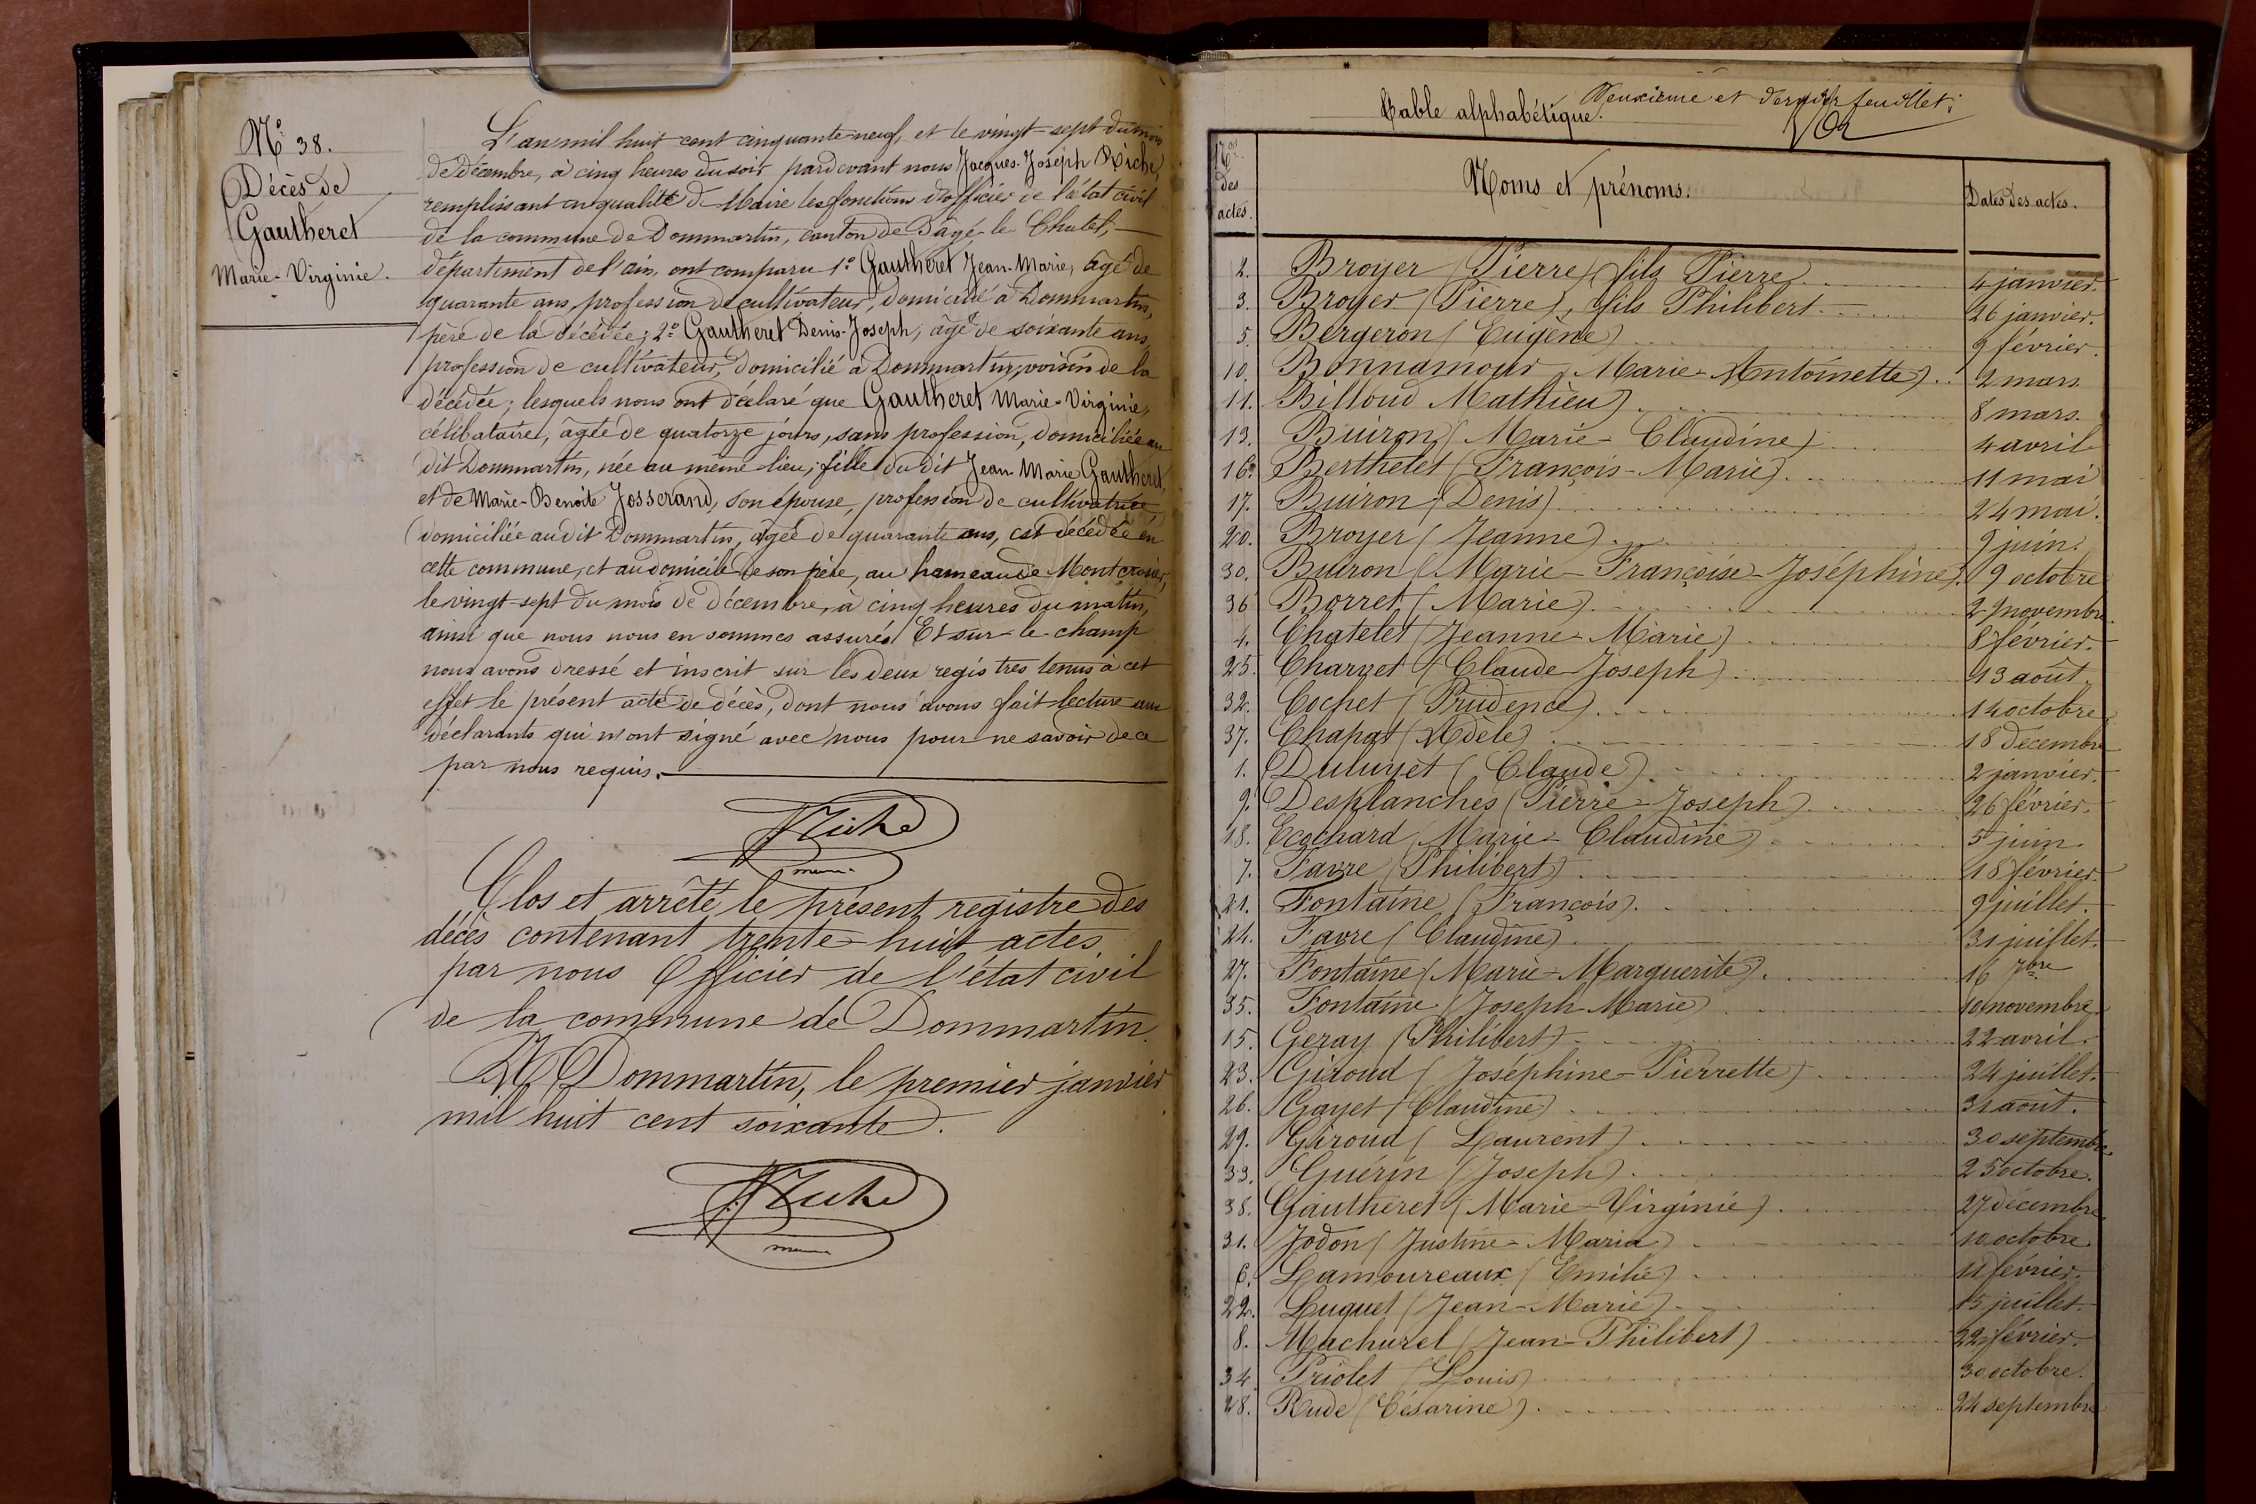 No 38.
Décès de
Gautheret
Marie-Virginie.
L'an mil huit cent cinquante-neuf, et le vingt-sept du mois
de décembre, à cinq heures du soir, pardevant nous Jacques-Joseph Riche,
remplissant en qualité de Maire les fonctions d'officier de l'état civil
de la commune de Dommartin, canton de Bâgé-le-Chatel,
département de l'ain, ont comparu 1º Gautheret Jean-Marie, âgé de
quarante ans, profession de cultivateur, domicilié à Dommartin,
père de la décédée; 2º Gautheret Denis-Joseph, âgé de soixante ans,
profession de cultivateur, domicilié à Dommartin, voisin de la
décédée; lesquels nous ont déclaré que Gautheret Marie-Virginie,
célibataire, âgée de quatorze jours, sans profession, domiciliée au
dit Dommartin, née au même lieu; fille du dit Jean-Marie Gautheret,
et de Marie-Benoite Josserand, son épouse, profession de cultivatrice,
domiciliée audit Dommartin, âgée de quarante ans, est décédée en
cette commune, et au domicile de son père, au hameau de Montcrosier,
le vingt-sept du mois de décembre, à cinq heures du matin,
ainsi que nous nous en sommes assuré. Et sur-le-champ
nous avons dressé et inscrit sur les deux registres tenus à cet
effet le présent acte de décès, dont nous avons fait lecture aux
déclarants qui n'ont signé avec nous pour ne savoir de ce
par nous requis.
Riche
Clos et arrêté le présent registre des
décès contenant trente-huit actes
par nous Officier de l'état civil
de la commune de Dommartin.
A Dommartin, le premier janvier
mil huit cent soixante.
Riche
Deuxième et dernier feuillet.
Table alphabétique.
Nos des actes. Noms et prénoms. Dates des actes.
2. Broyer (Pierre) fils Pierre 4 janvier.
3. Broyer (Pierre), fils Philibert 26 janvier.
5. Bergeron (Eugène) 9 février.
10. Bonnamour (Marie-Antoinette) 2 mars.
11. Billoud Mathieu) 8 mars.
13. Buiron (Marie-Claudine) 4 avril
16. Berthelet (François-Marie) 11 mai
17. Buiron (Denis) 24 mai.
20. Broyer (Jeanne) 9 juin.
30. Buiron (Marie-Françoise-Joséphine) 9 octobre
36 Borret (Marie) 29 novembre.
4. Chatelet (Jeanne-Marie) 8 février.
25. Charvet (Claude-Joseph) 13 août.
32. Cochet (Prudence) 14 octobre
37. Chapat (Adèle) 18 décembre
1. Duluyet (Claude) 2 janvier.
9. Desplanches (Pierre-Joseph) 26 février.
18. Ecochard (Marie-Claudine) 5 juin.
7. Favre (Philibert) 18 février
21. Fontaine (François). 9 juillet.
24. Favre (Claudine) 31 juillet.
27. Fontaine (Marie-Marguerite). 16 7bre
35. Fontaine (Joseph-Marie) 10 novembre.
15. Geray (Philibert) 22 avril.
23. Giroud (Joséphine-Pierrette) 24 juillet.
26. Gayet (Claudine) 31 août.
29. Giroud (Laurent) 30 septembre.
33. Guérin (Joseph) 25 octobre.
38. Gautheret (Marie-Virginie) 27 décembre
31. Jodon (Justine-Maria) 10 octobre
6. Lamoureaux (Emilie) 11 février.
22. Luguet (Jean-Marie) 15 juillet.
8. Machurel (Jean-Philibert) 22 février.
34. Priolet (Louis) 30 octobre.
28. Rude (Césarine) 24 septembre